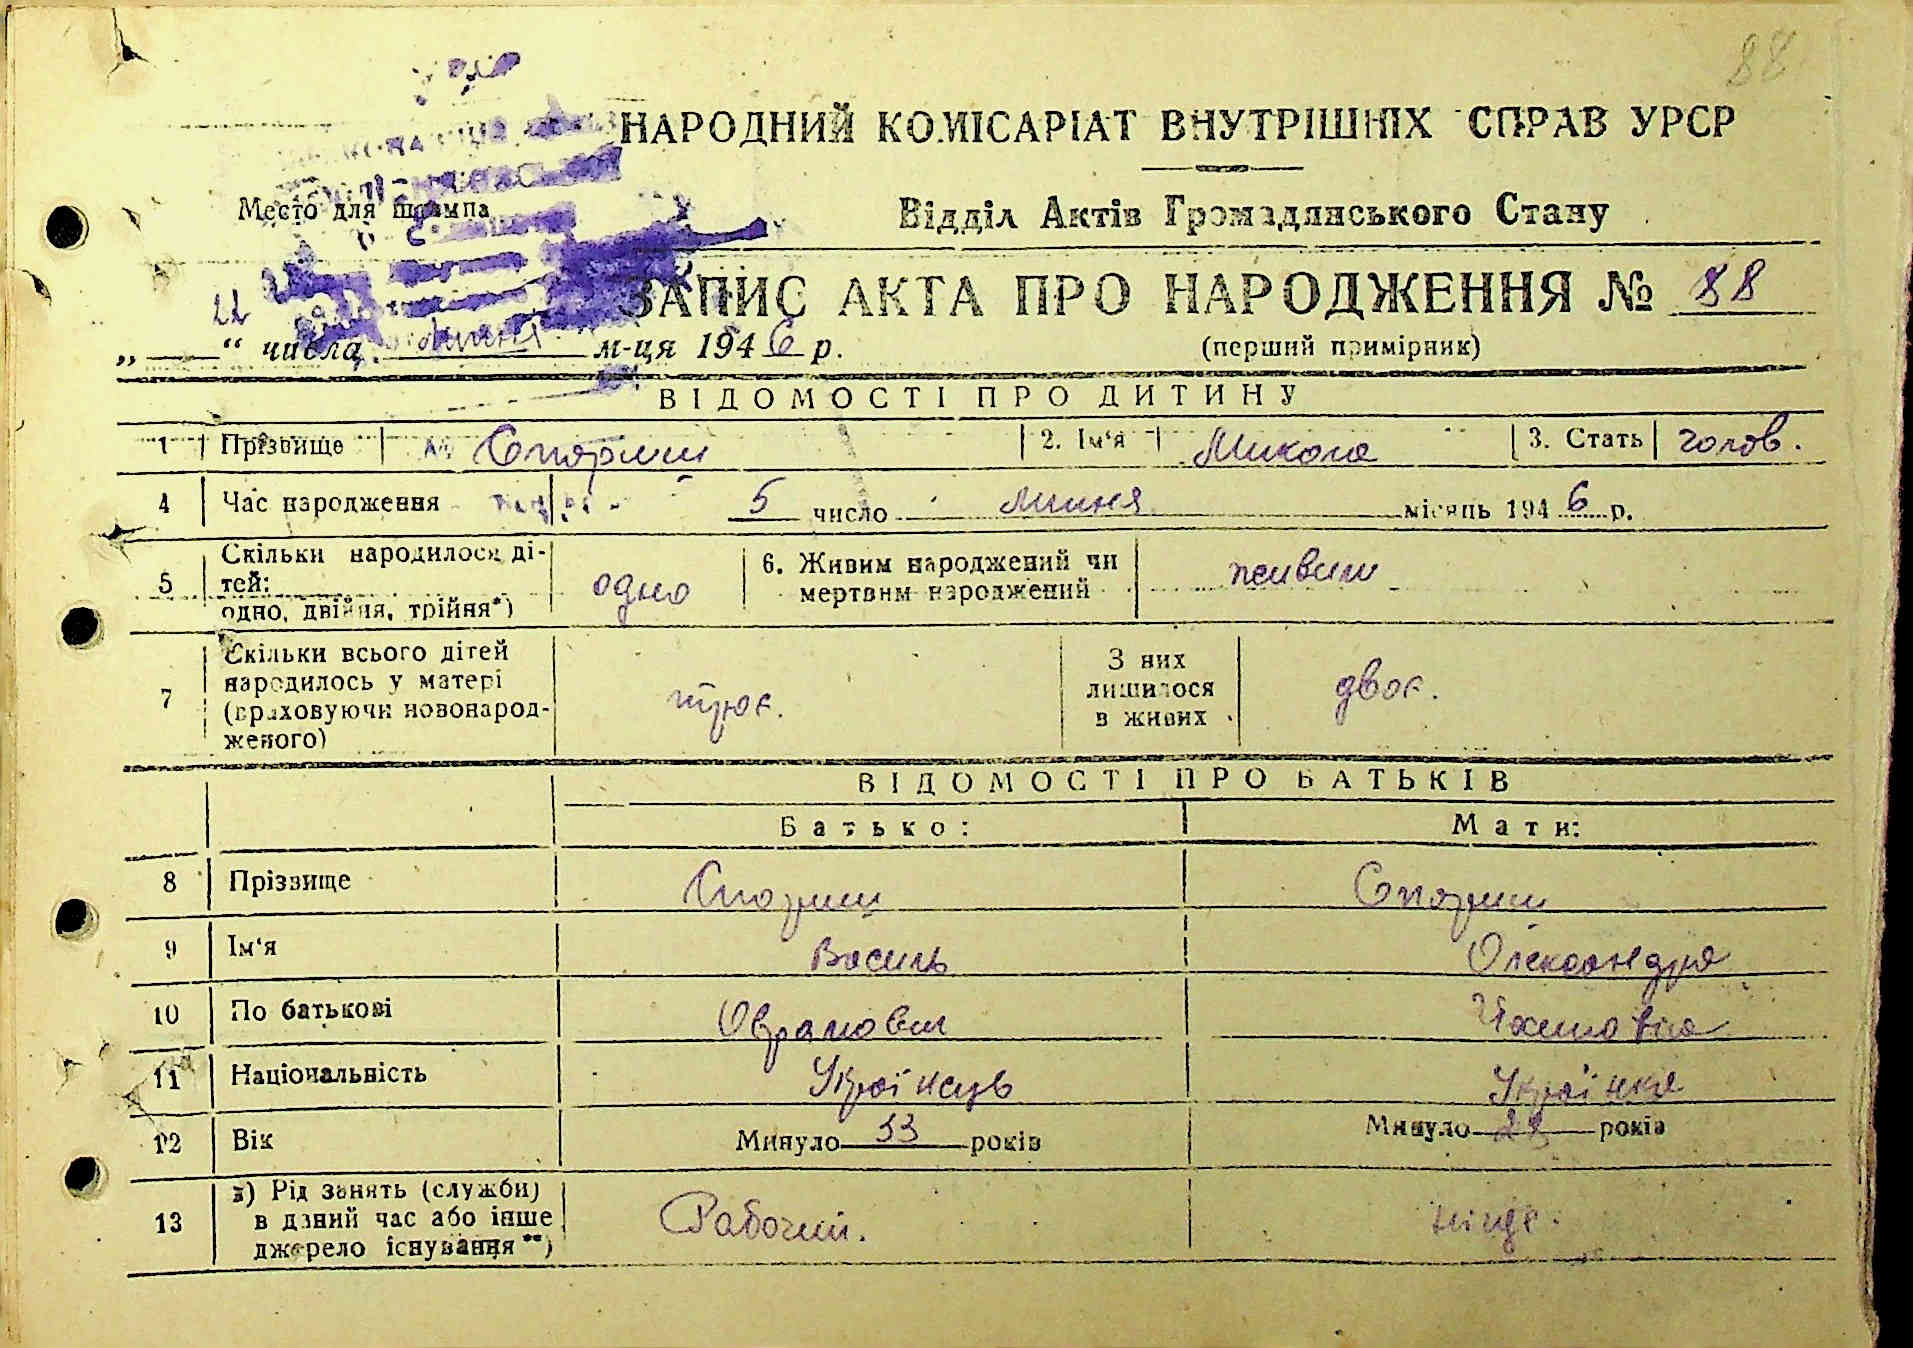 88
НАРОДНИЙ КОМІСАРІАТ ВНУТРІШНІХ СПРАВ УРСР
Место для штампа
Відділ Актів Громадянського Стану
ЗАПИС АКТА ПРО НАРОДЖЕННЯ № 88
22
„ “ числа липня м-ця 1946 р.
(перший примірник)
ВІДОМОСТІ ПРО ДИТИНУ
1 Прізвище 2. Ім‘я Микола 3. Стать голов.
4 Час народження 5 число липня місяць 1946 р.
5 Скільки народилося ді-
тей:
одно, двійня, трійня*) одно
6. Живим народжений чи
мертвим народжений живим
7 Скільки всього дітей
народилось у матері
(враховуючи новонарод-
женого) троє.
З них
лишилося
в живих двоє.
ВІДОМОСТІ ПРО БАТЬКІВ
Батько: Мати:
8 Прізвище
9 Ім‘я Василь Олександра
10 По батькові
11 Національність Українець Українка
12 Вік Минуло 33 років Минуло років
13 а) Рід занять (служби)
в даний час або інше
джерело існування**) Рабочий. нігде.